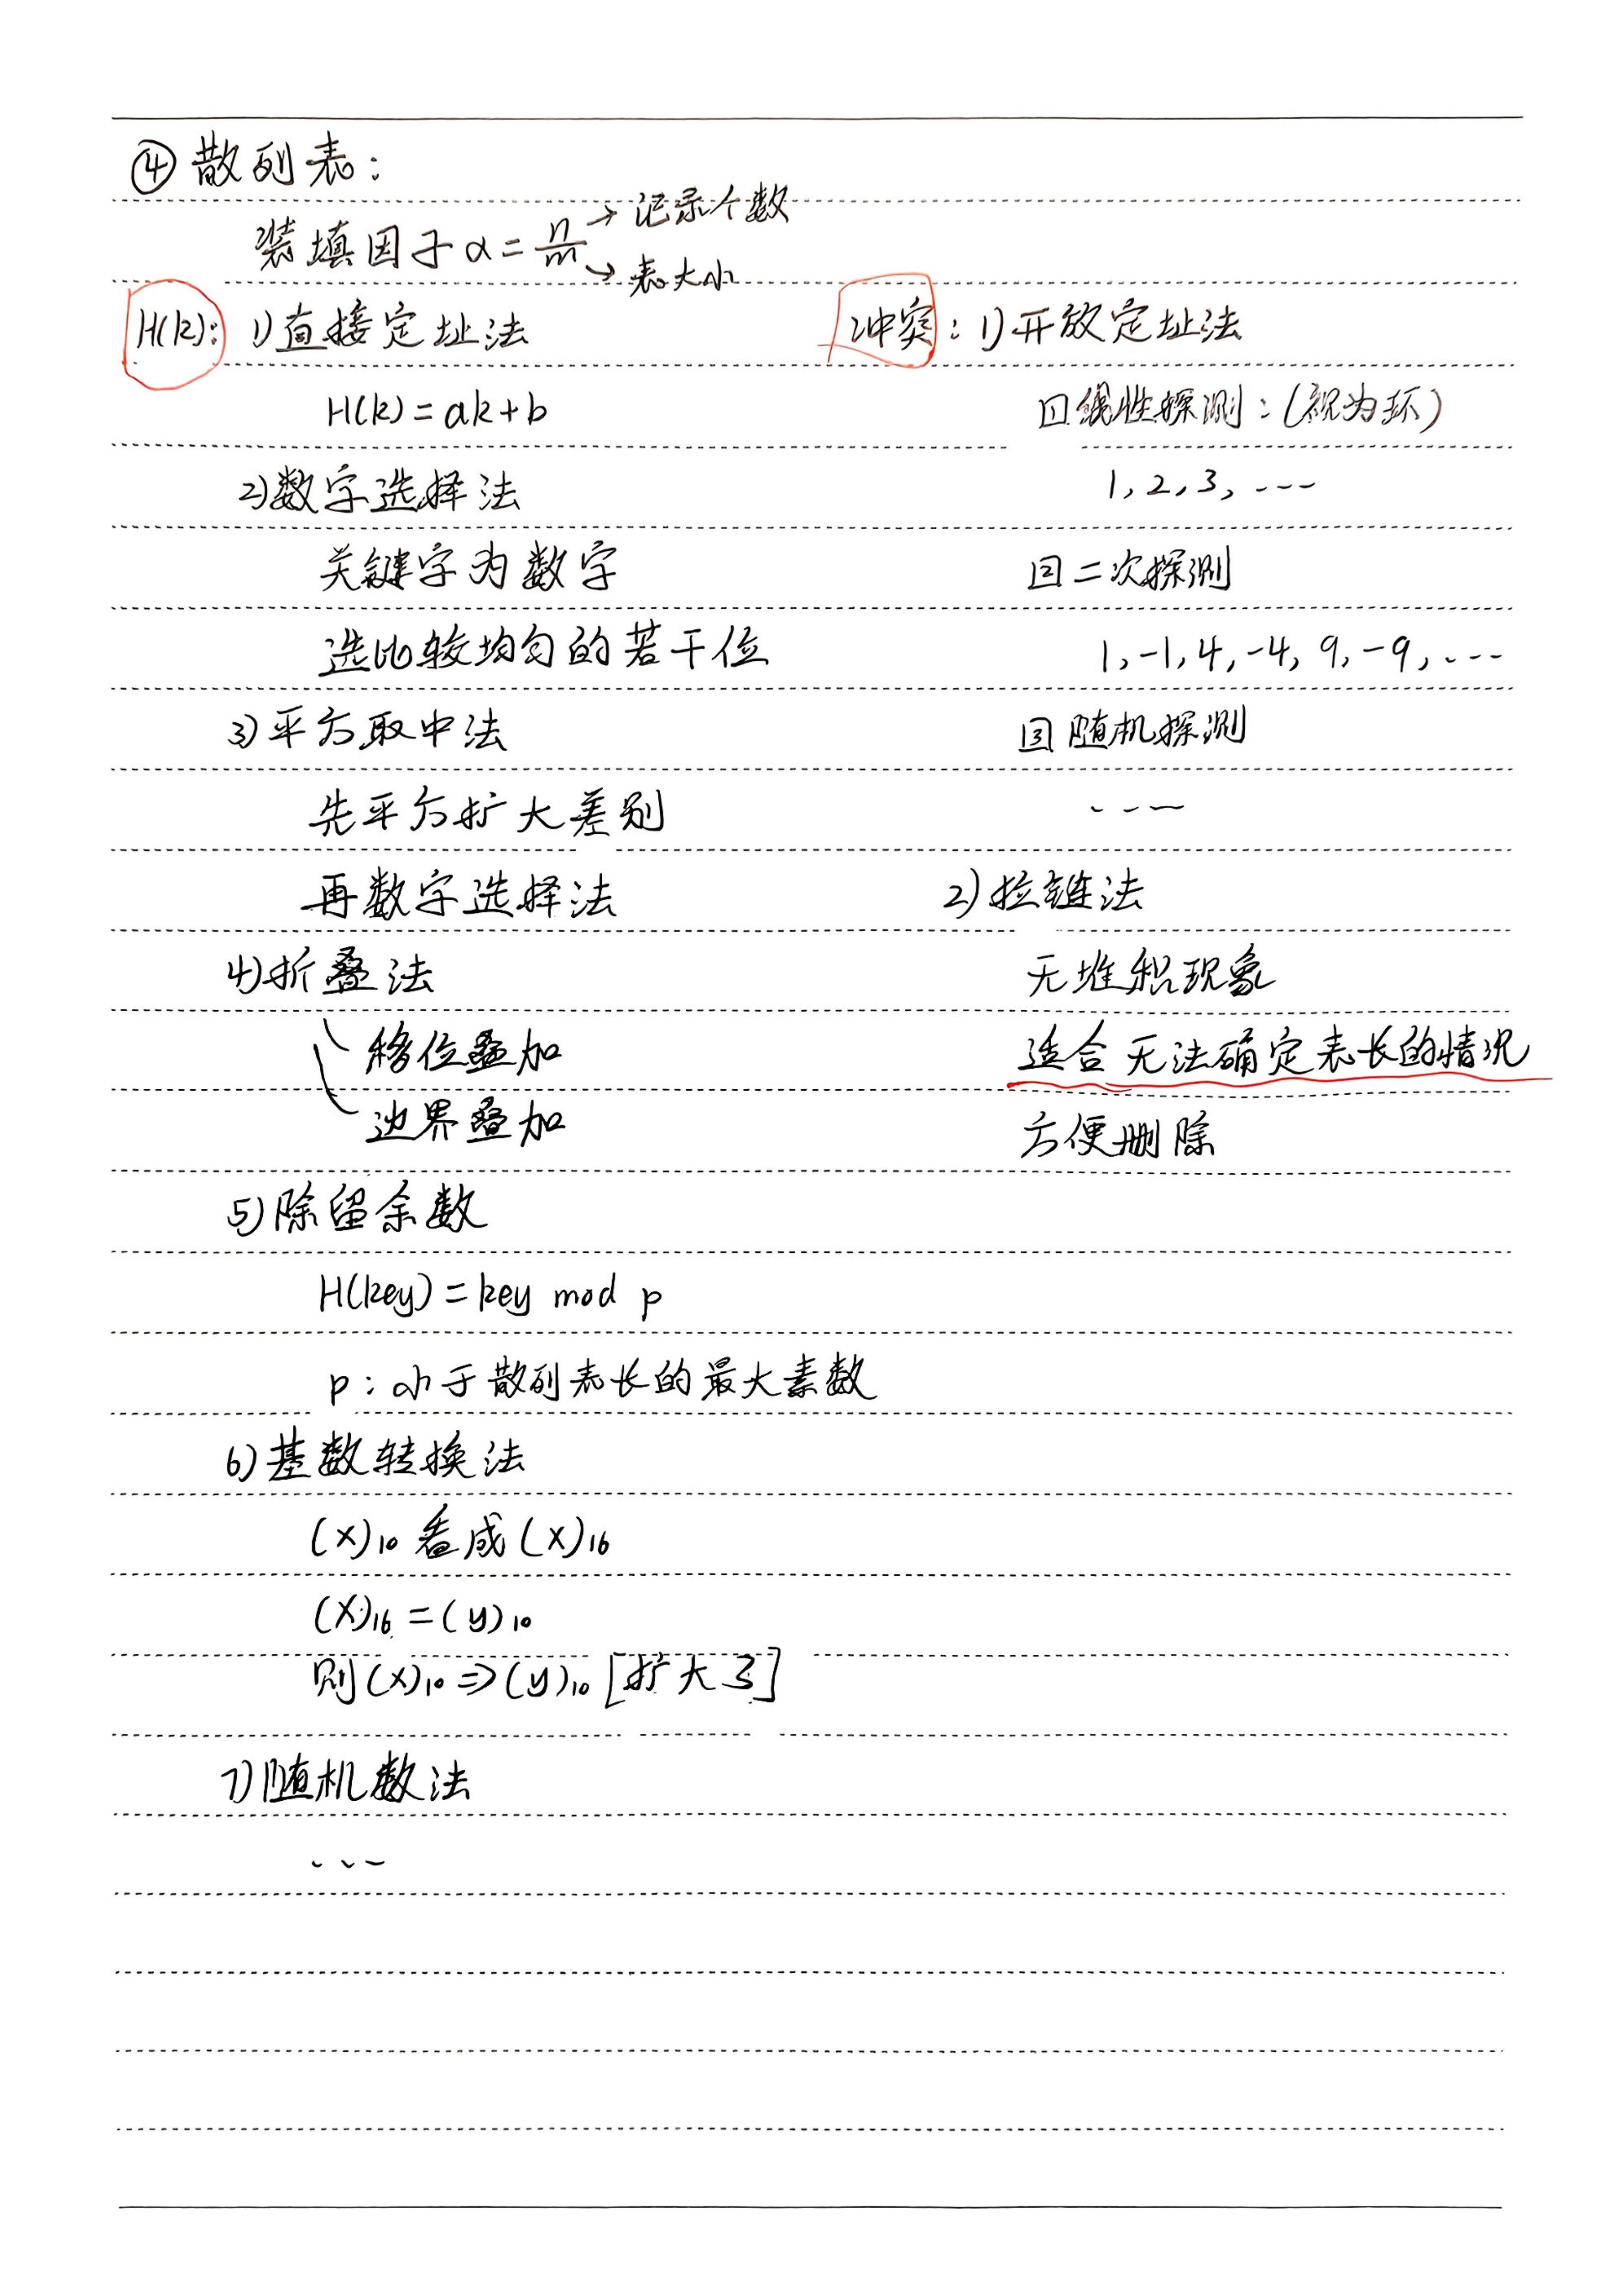 ④散列表:
装填因子α=n/m →记录个数
→表大小
H(k): 1)直接定址法
H(k)=ak+b
2)数字选择法
关键字为数字
选比较均匀的若干位
3)平方取中法
先平方扩大差别
再数字选择法
4)折叠法
移位叠加
边界叠加
5)除留余数
H(key)=key mod p
p:小于散列表长的最大素数
6)基数转换法
(x)₁₀看成(x)₁₆
(x)₁₆=(y)₁₀
则(x)₁₀⇒(y)₁₀[扩大了]
7)随机数法
---
冲突:1)开放定址法
1 线性探测:(视为环)
1,2,3,---
2 二次探测
1,-1,4,-4,9,-9,---
3 随机探测
---
2)拉链法
无堆积现象
适合无法确定表长的情况
方便删除